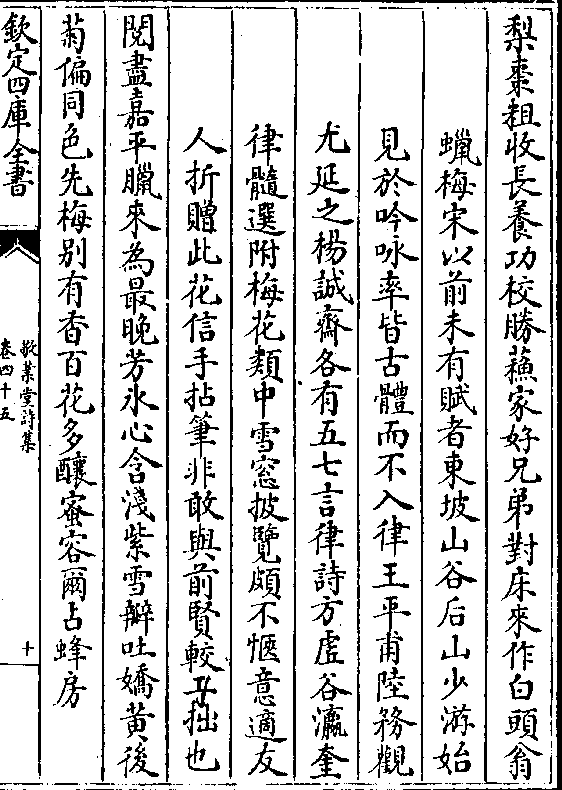 梨棗粗收長養功校勝蘓家好兄弟對床來作白頭翁
蠟梅宋以前未有賦者東坡山谷后山少游始
見於吟咏率皆古體而不入律王平甫陸務觀
尤延之楊誠齋各有五七言律詩方虛谷瀛奎
律髓選附梅花類中雪窓披覽頗不愜意適友
人折贈此花信手拈筆非敢與前賢較工拙也
閱盡嘉平臘來為最晚芳氷心含淺紫雪瓣吐嬌黄後
菊偏同色先梅别有香百花多釀蜜容爾占蜂房
欽定四庫全書
敬業堂詩集
卷四十五
十